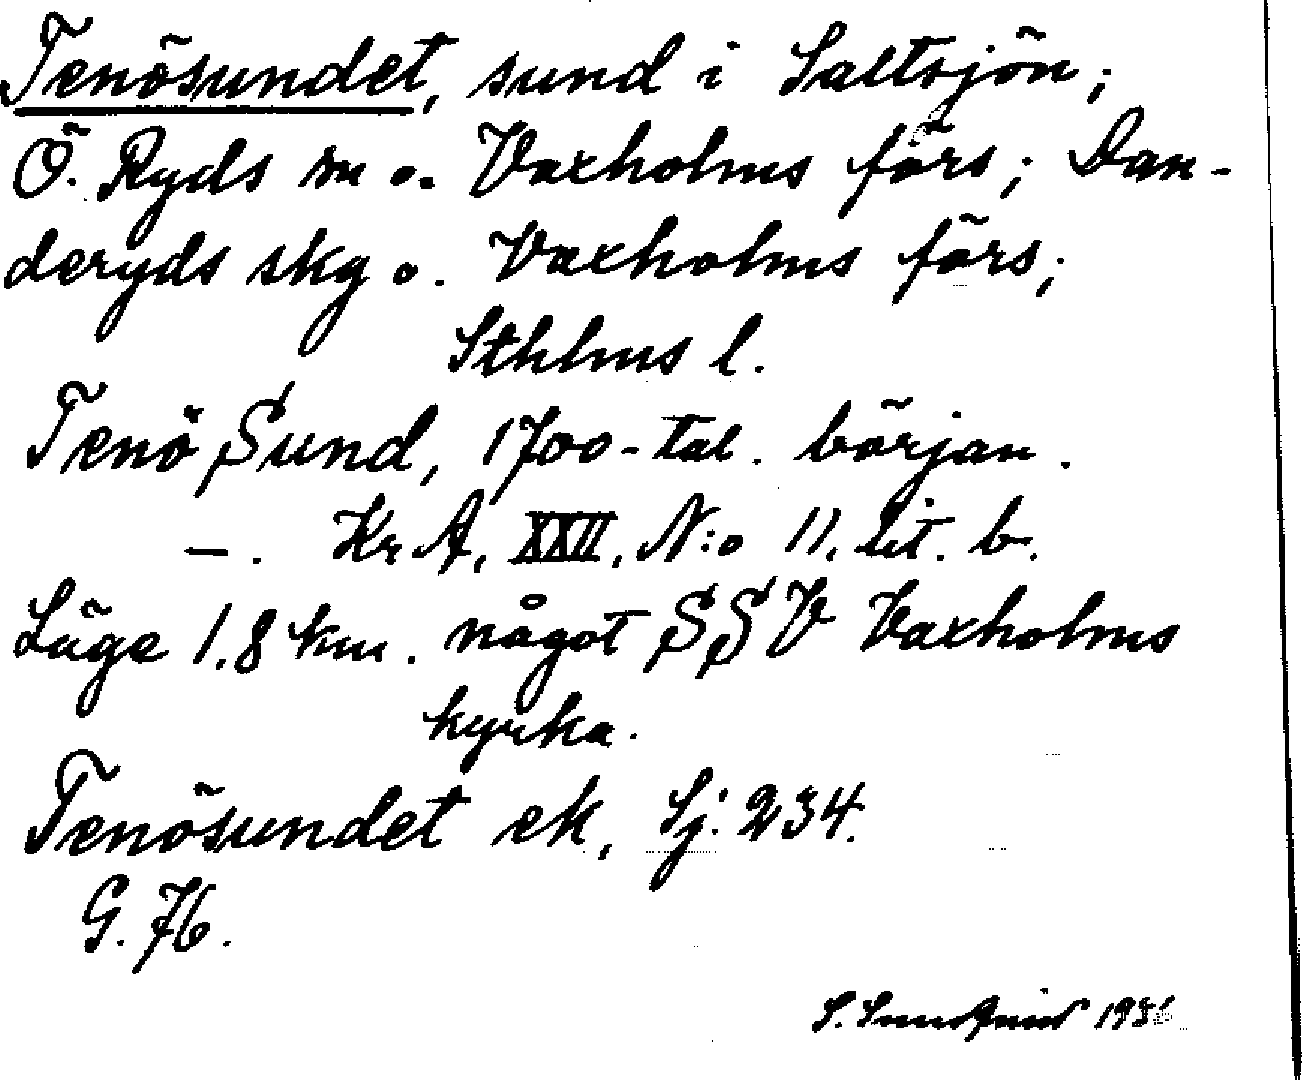 Tenösundet, sund i Saltsjön;
Ö. Ryds sn o. Vaxholms förs; Dan-
deryds skg o. Vaxholms förs;
Sthlms l.
Tenö Sund, 1700-tal. början.
—. Kr A, XXII, N:o 11. Lit. b.
Läge 1.8 km. något SSV Vaxholms
kyrka.
Tenösundet ek, Sj. 234.
G. 76.
S.